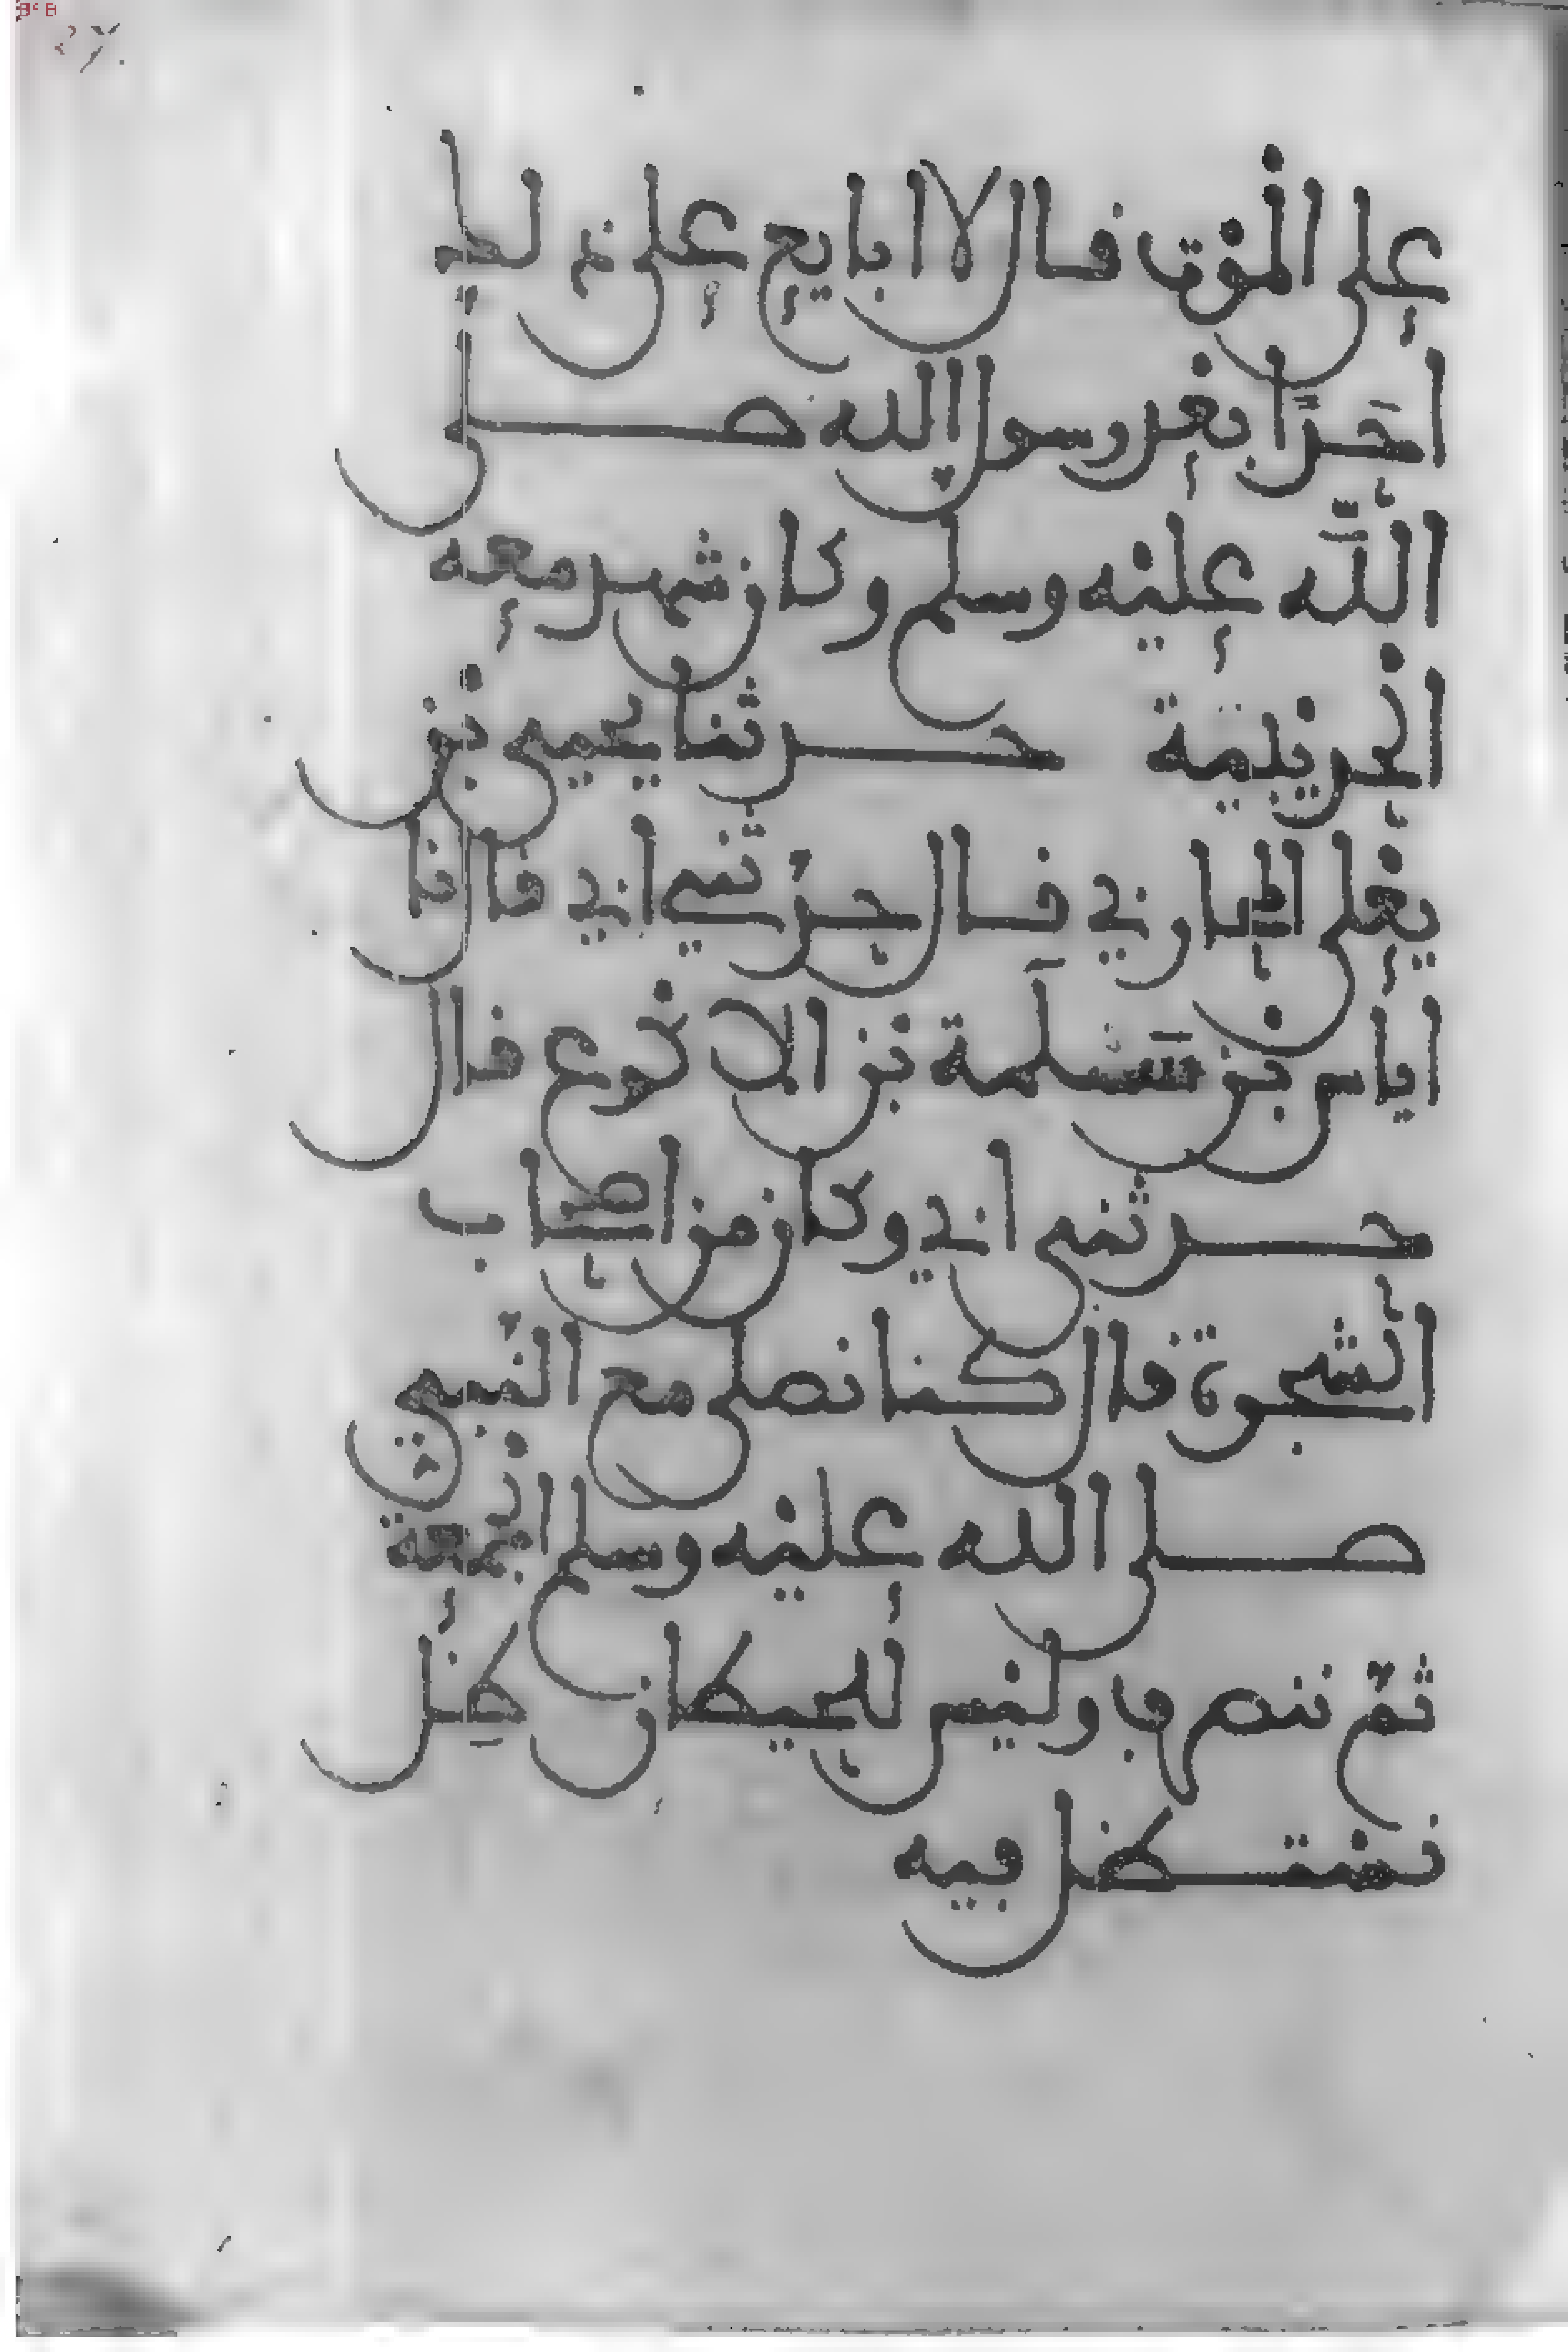 على الموت فال لا ابايع على ذلك
احدا بعد رسول الله صلى
الله عليه وسلم وكان شهد معه
الحديبية حدثنا يحيى بن
يعلى المحاربي فال حدثني ابي فال نا
اياس بن سلمة بن الاكوع فال
حدثني ابي وكان من اصحاب
الشجرة فال كنا نصلي مع النبي
صلى الله عليه وسلم الجمعة
ثم ننصرف وليس للحيطان ظل
نستظل فيه